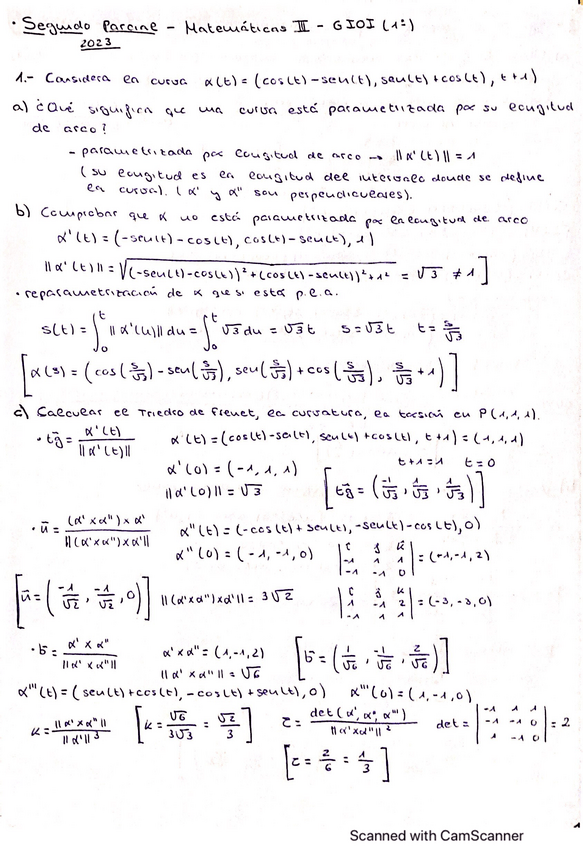 · Segundo Parcial - Matemáticas III - GIOI (1º)
2023
1.- Considera la curva α(t) = (cos(t) - sen(t), sen(t) + cos(t), t + 1)
a) ¿Qué significa que una curva está parametrizada por su longitud
de arco?
- parametrizada por longitud de arco → ||α'(t)|| = 1
(su longitud es la longitud del intervalo donde se define
la curva). (α' y α'' son perpendiculares).
b) Comprobar que α no está parametrizada por la longitud de arco
α'(t) = (-sen(t) - cos(t), cos(t) - sen(t), 1)
||α'(t)|| = √((-sen(t) - cos(t))² + (cos(t) - sen(t))² + 1²) = √3 ≠ 1]
· reparametrización de α que si está p.l.a.
s(t) = ∫₀ᵗ ||α'(u)|| du = ∫₀ᵗ √3 du = √3 t s = √3 t t = s/√3
[α(s) = (cos(s/√3) - sen(s/√3), sen(s/√3) + cos(s/√3), s/√3 + 1)]
c) Calcular el Triedro de Frenet, la curvatura, la torsión en P(1,1,1).
· tg = α'(t)/||α'(t)|| α(t) = (cos(t) - sen(t), sen(t) + cos(t), t + 1) = (1,1,1)
α'(0) = (-1, 1, 1) t + 1 = 1 t = 0
||α'(0)|| = √3 [tg = (-1/√3, 1/√3, 1/√3)]
· n = (α' x α'') x α' / ||(α' x α'') x α'|| α''(t) = (-cos(t) + sen(t), -sen(t) - cos(t), 0)
α''(0) = (-1, -1, 0) |i j k; -1 1 1; -1 -1 0| = (+1, -1, 2)
[n = (-1/√2, -1/√2, 0)] ||(α' x α'') x α'|| = 3√2 |i j k; 1 -1 2; -1 1 1| = (-3, -3, 0)
· b = α' x α'' / ||α' x α''|| α' x α'' = (1, -1, 2) [b = (1/√6, -1/√6, 2/√6)]
||α' x α''|| = √6
α'''(t) = (sen(t) + cos(t), -cos(t) + sen(t), 0) α'''(0) = (1, -1, 0)
κ = ||α' x α''|| / ||α'||³ [κ = √6/3√3 = √2/3] τ = det(α', α'', α''') / ||α' x α''||² det = |-1 1 1; -1 -1 0; 1 -1 0| = 2
[τ = 2/6 = 1/3]
1
Scanned with CamScanner